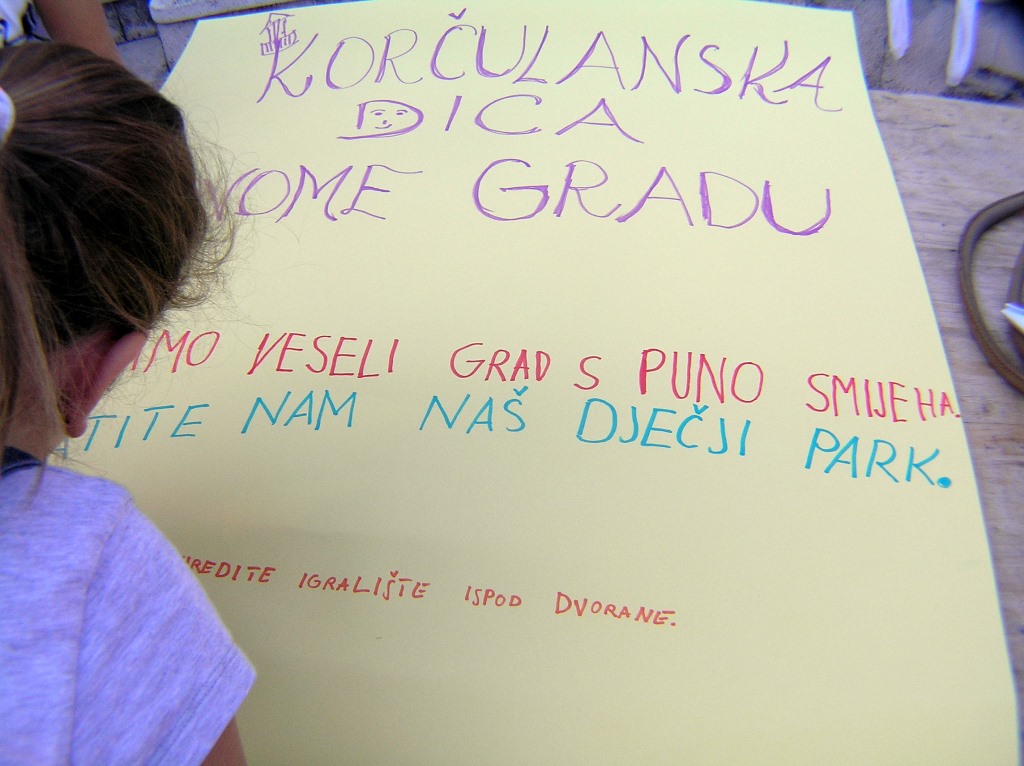 KORČULANSKA
DICA
GRADU
VESELI GRAD S PUNO SMIJEHA.
NAM NAŠ DJEČJI PARK.
IGRALIŠTE ISPOD DVORANE.